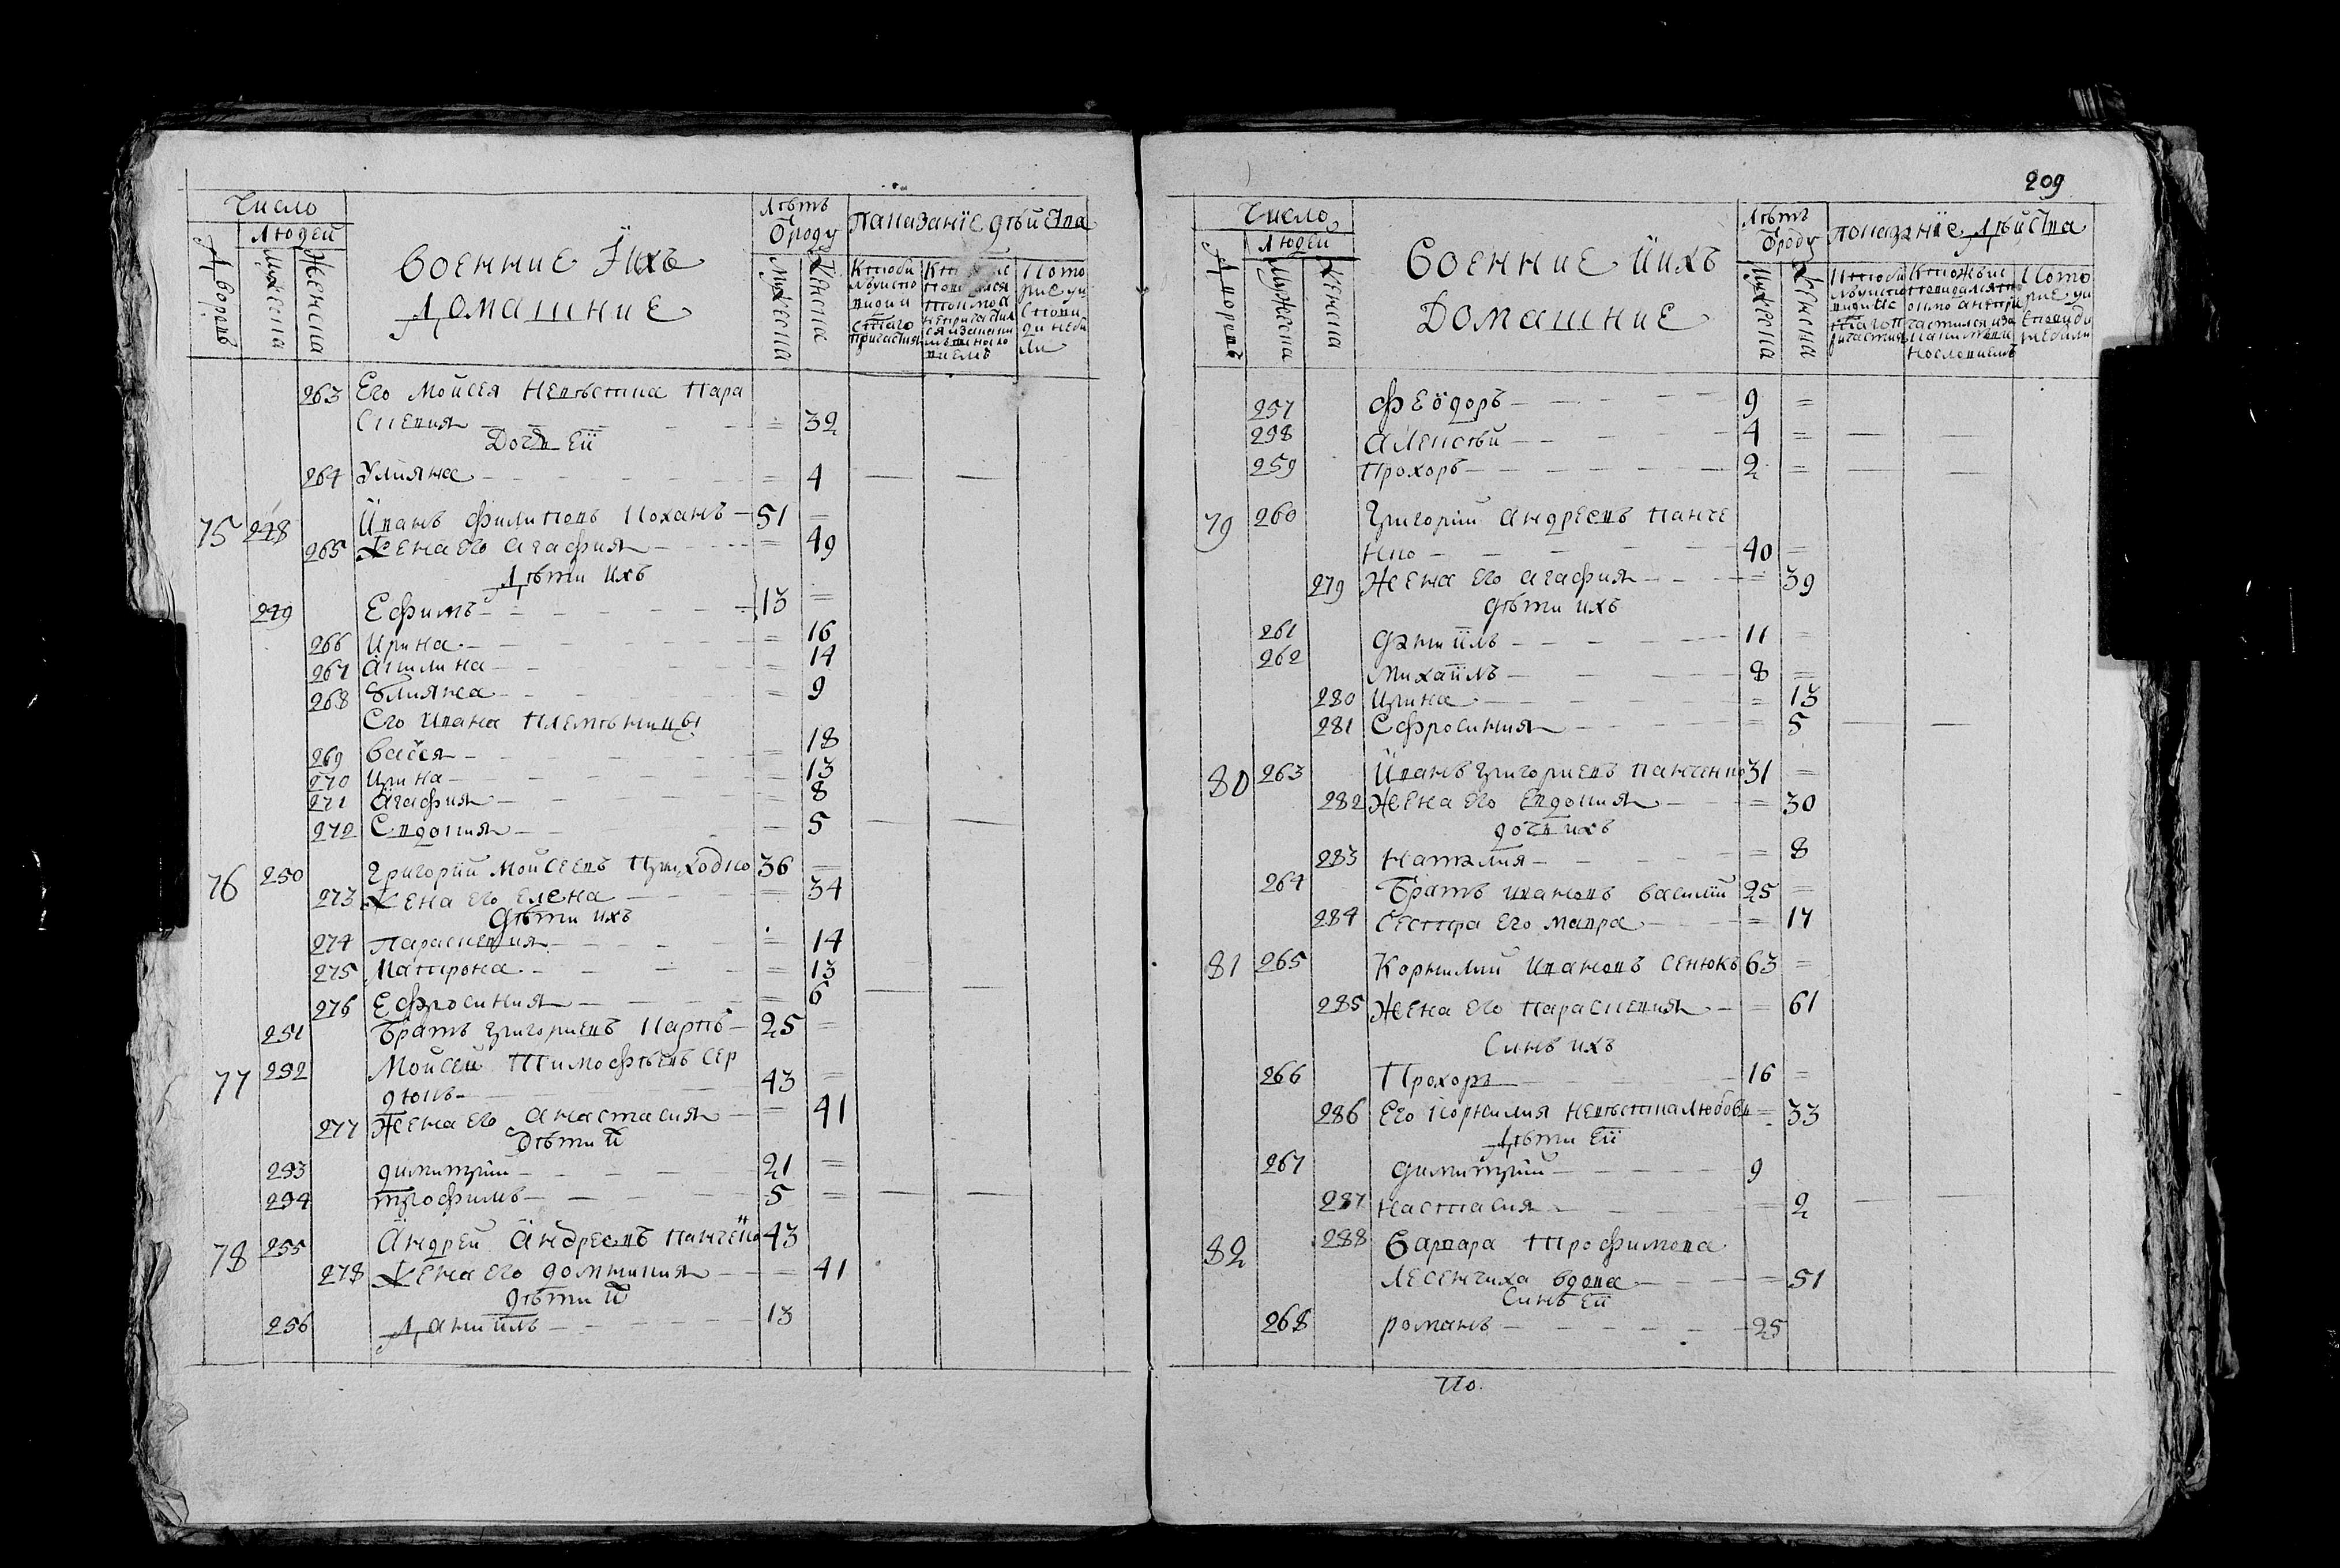 Число
Людей
Дворовъ
Мужеска
Женска
Военние Ӥихъ
Домашние
Лѣтъ
Ѿроду
Мужеска
Женска
Показанїе дѣйства
263 Его Мойсея невѣстка Пара
скевия — = 32
Дочь еї
264 Улияна — = 4
75 248 Ӥванъ Филиповъ Коханъ — 51 =
265 Жена его Агафия — = 49
Дѣти ихъ
249 Ефимъ — 13 =
266 Ирина — = 16
267 Акилина — = 14
268 Улияна — = 9
Его Ивана племѣници
269 Васся — = 18
270 Ирина — = 13
271 Агафия — = 8
272 Евдокия — = 5
76 250 Григорій Мойсеевъ Приходко 36 =
273 Жена его Елена — = 34
Дѣти ихъ
274 Параскевия — = 14
275 Матрона — = 13
276 Ефросиния — = 6
251 Братъ Григориевъ Карпъ — 25 =
77 252 Мойсей Тимофѣевъ Сер
дюкъ — 43 =
277 Жена его Анастасия — = 41
Дѣти их
253 Димитрій — 21 =
254 Трофимъ — 5 =
78 255 Андрей Андреевъ Панченко 43
278 Жена его Домникия — = 41
Дѣти их
256 Данїилъ — 13
209
Число
Людей
Дворовъ
Мужеска
Женска
Военние Ӥихъ
Домашние
Лѣтъ
Ѿроду
Мужеска
Женска
Показание Дѣйства
257 Феѻдоръ — 9 =
258 Алексѣй — 4 =
259 Прохоръ — 2 =
79 260 Григорій Андреевъ Панче
нко — 40 =
279 Жена его Агафия — = 39
Дѣти ихъ
261 Данїилъ — 11 =
262 Михаїлъ — 8 =
280 Ирина — = 13
281 Ефросиния — = 5
80 263 Ӥванъ Григориевъ Панченко 31 =
282 Жена его Евдокия — = 30
Дочь ихъ
283 Наталия — = 8
264 Братъ Ивановъ Василій 25 =
284 Сестра его Мавра — = 17
81 265 Корнилий Ивановъ Сенюкъ 63 =
285 Жена его Параскевия — = 61
Синъ ихъ
266 Прохоръ — 16 =
286 Его Корнилия невѣстка Любовь = 33
Дѣти еї
267 Димитрій — 9
287 Настасия — = 2
82 288 Варвара Трофимова
Лесенчиха вдова — = 51
Синъ еї
268 Романъ — 25
По.